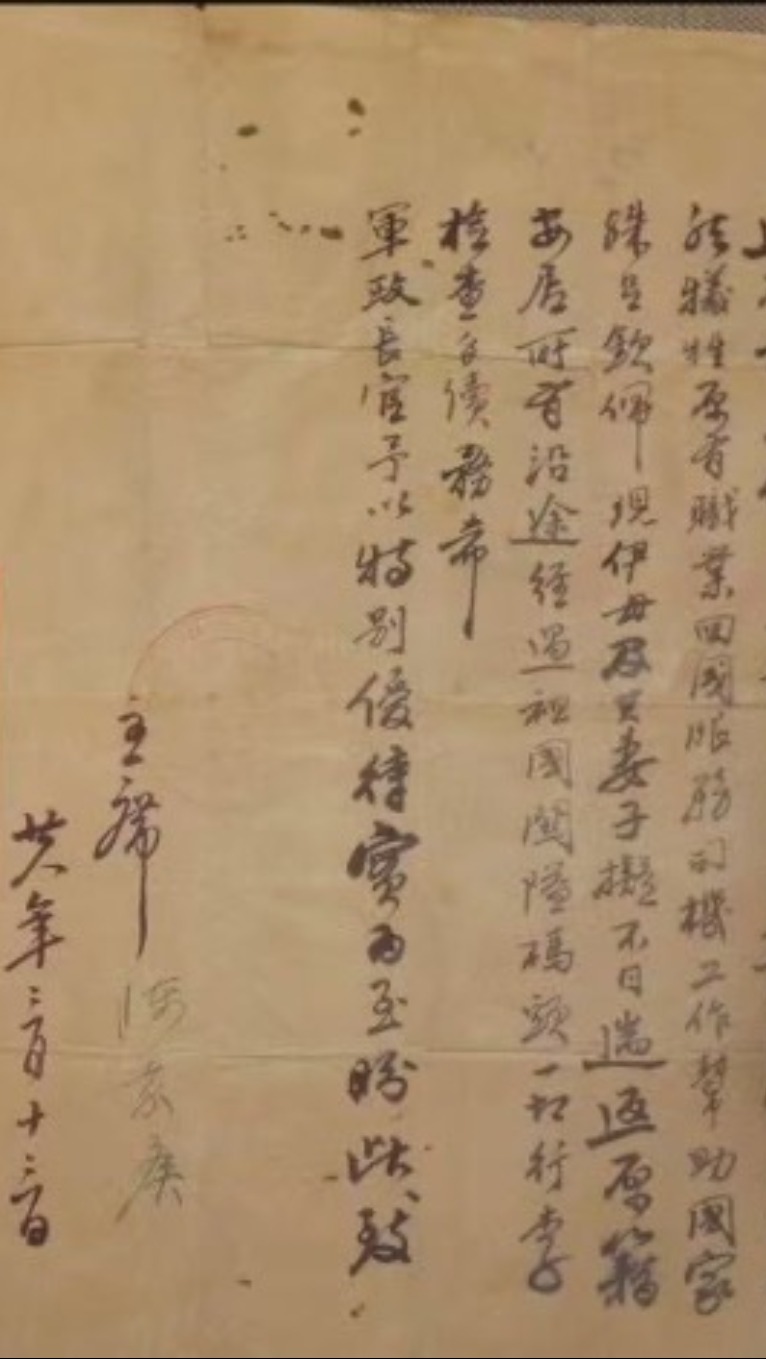 然犧牲原有職業回國服務司機工作幫助國家
殊足欽佩現伊母及其妻子擬不日遄返原籍
安居所有沿途經過祖國關隘碼頭一切行李
檢查手續務希
軍政長官予以特別優待實為至盼此致
主席
廿八年三月十三日